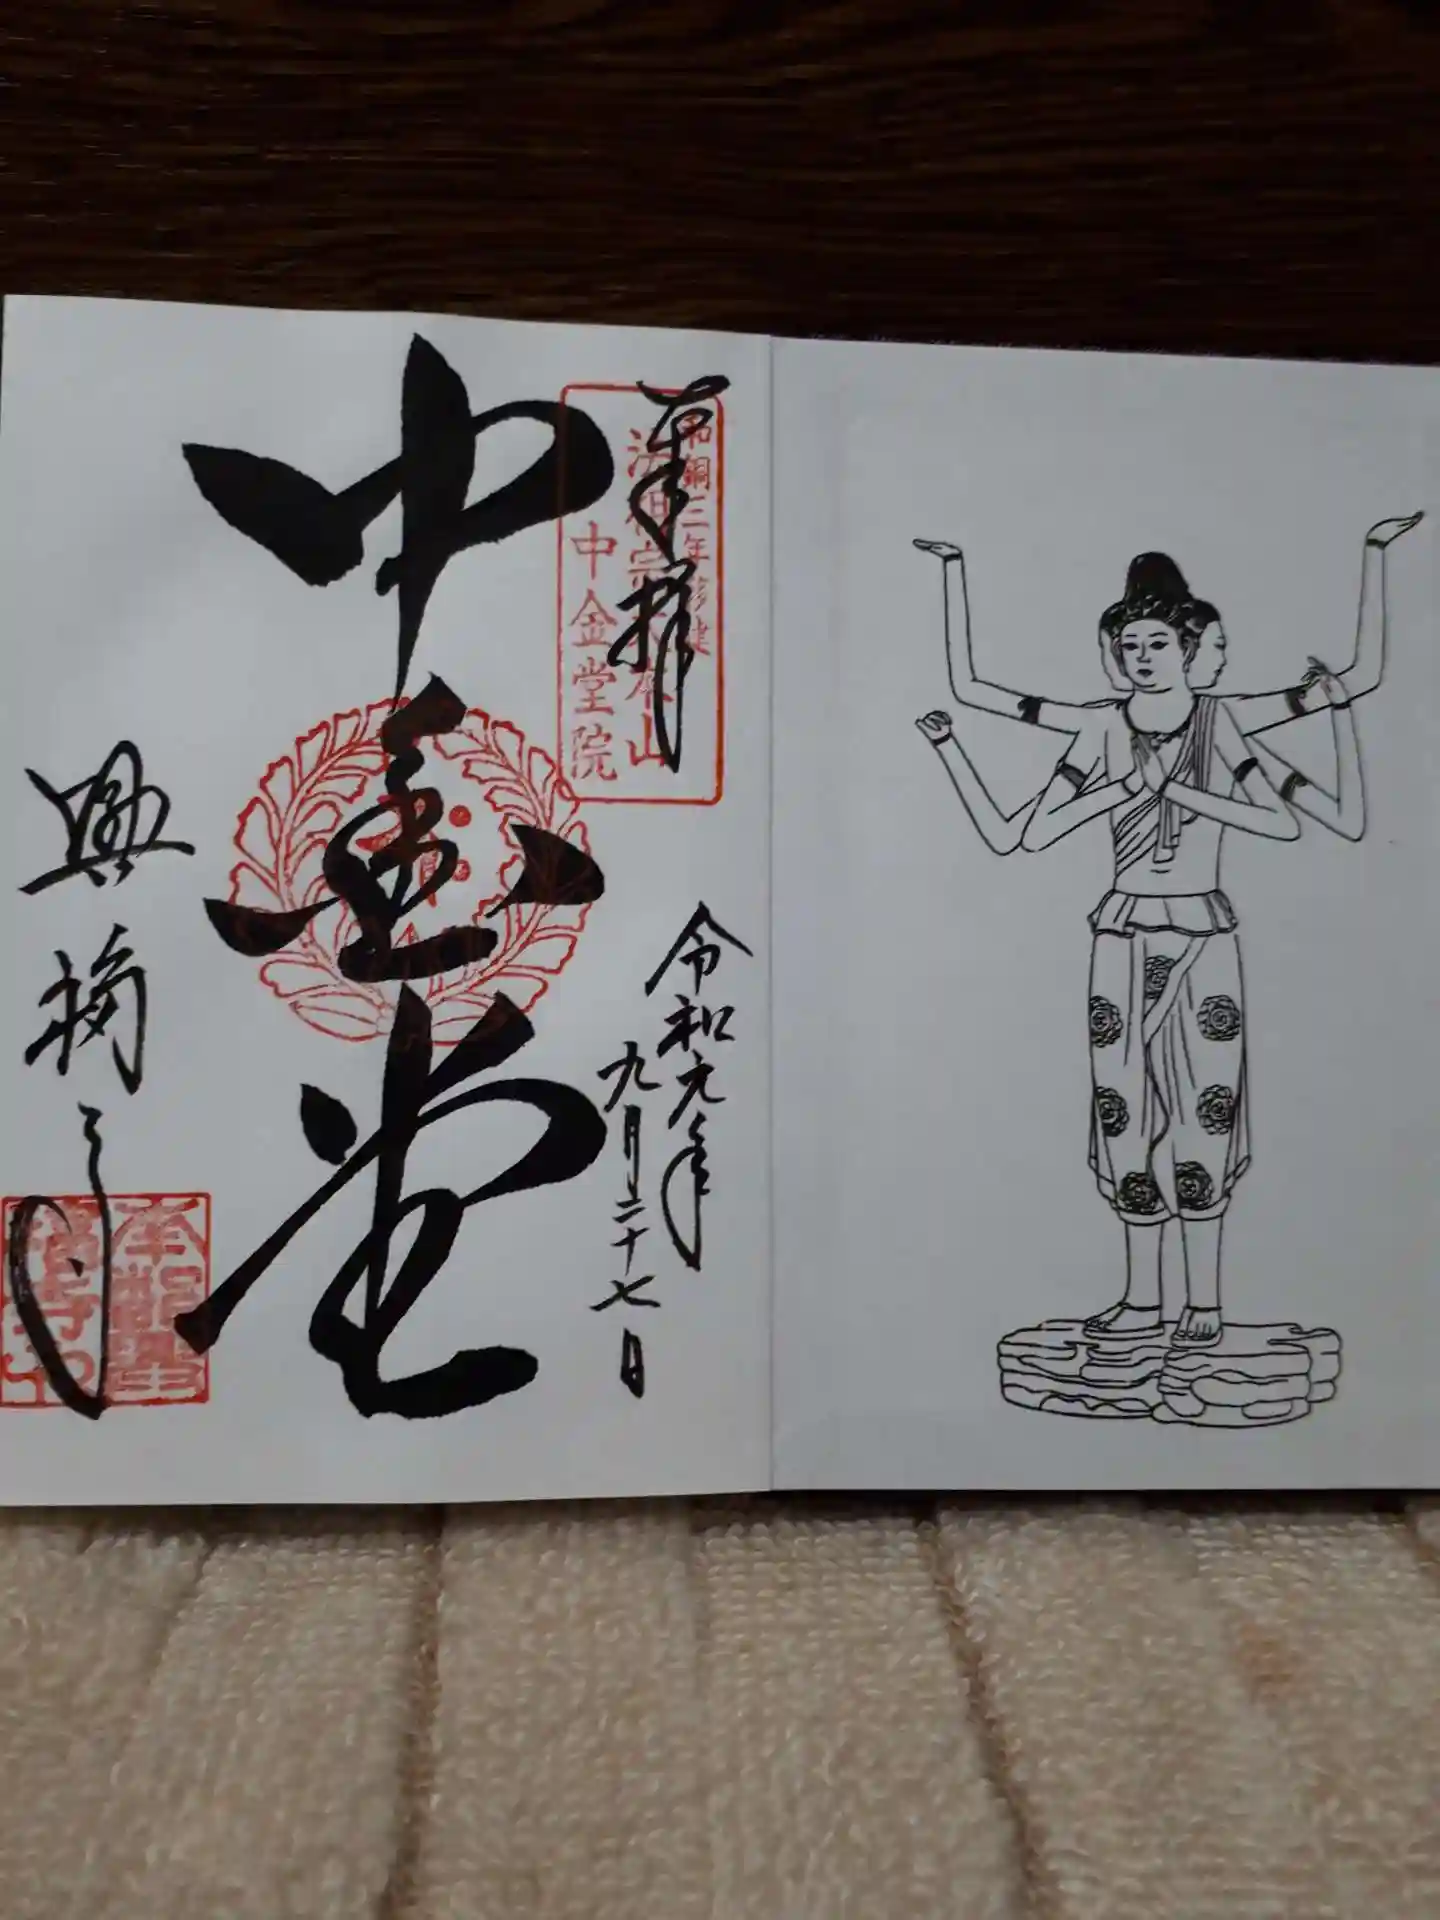 奉拝
和銅三年移建
法相宗大本山
中金堂院
令和元年
九月二十七日
中金堂
興福寺